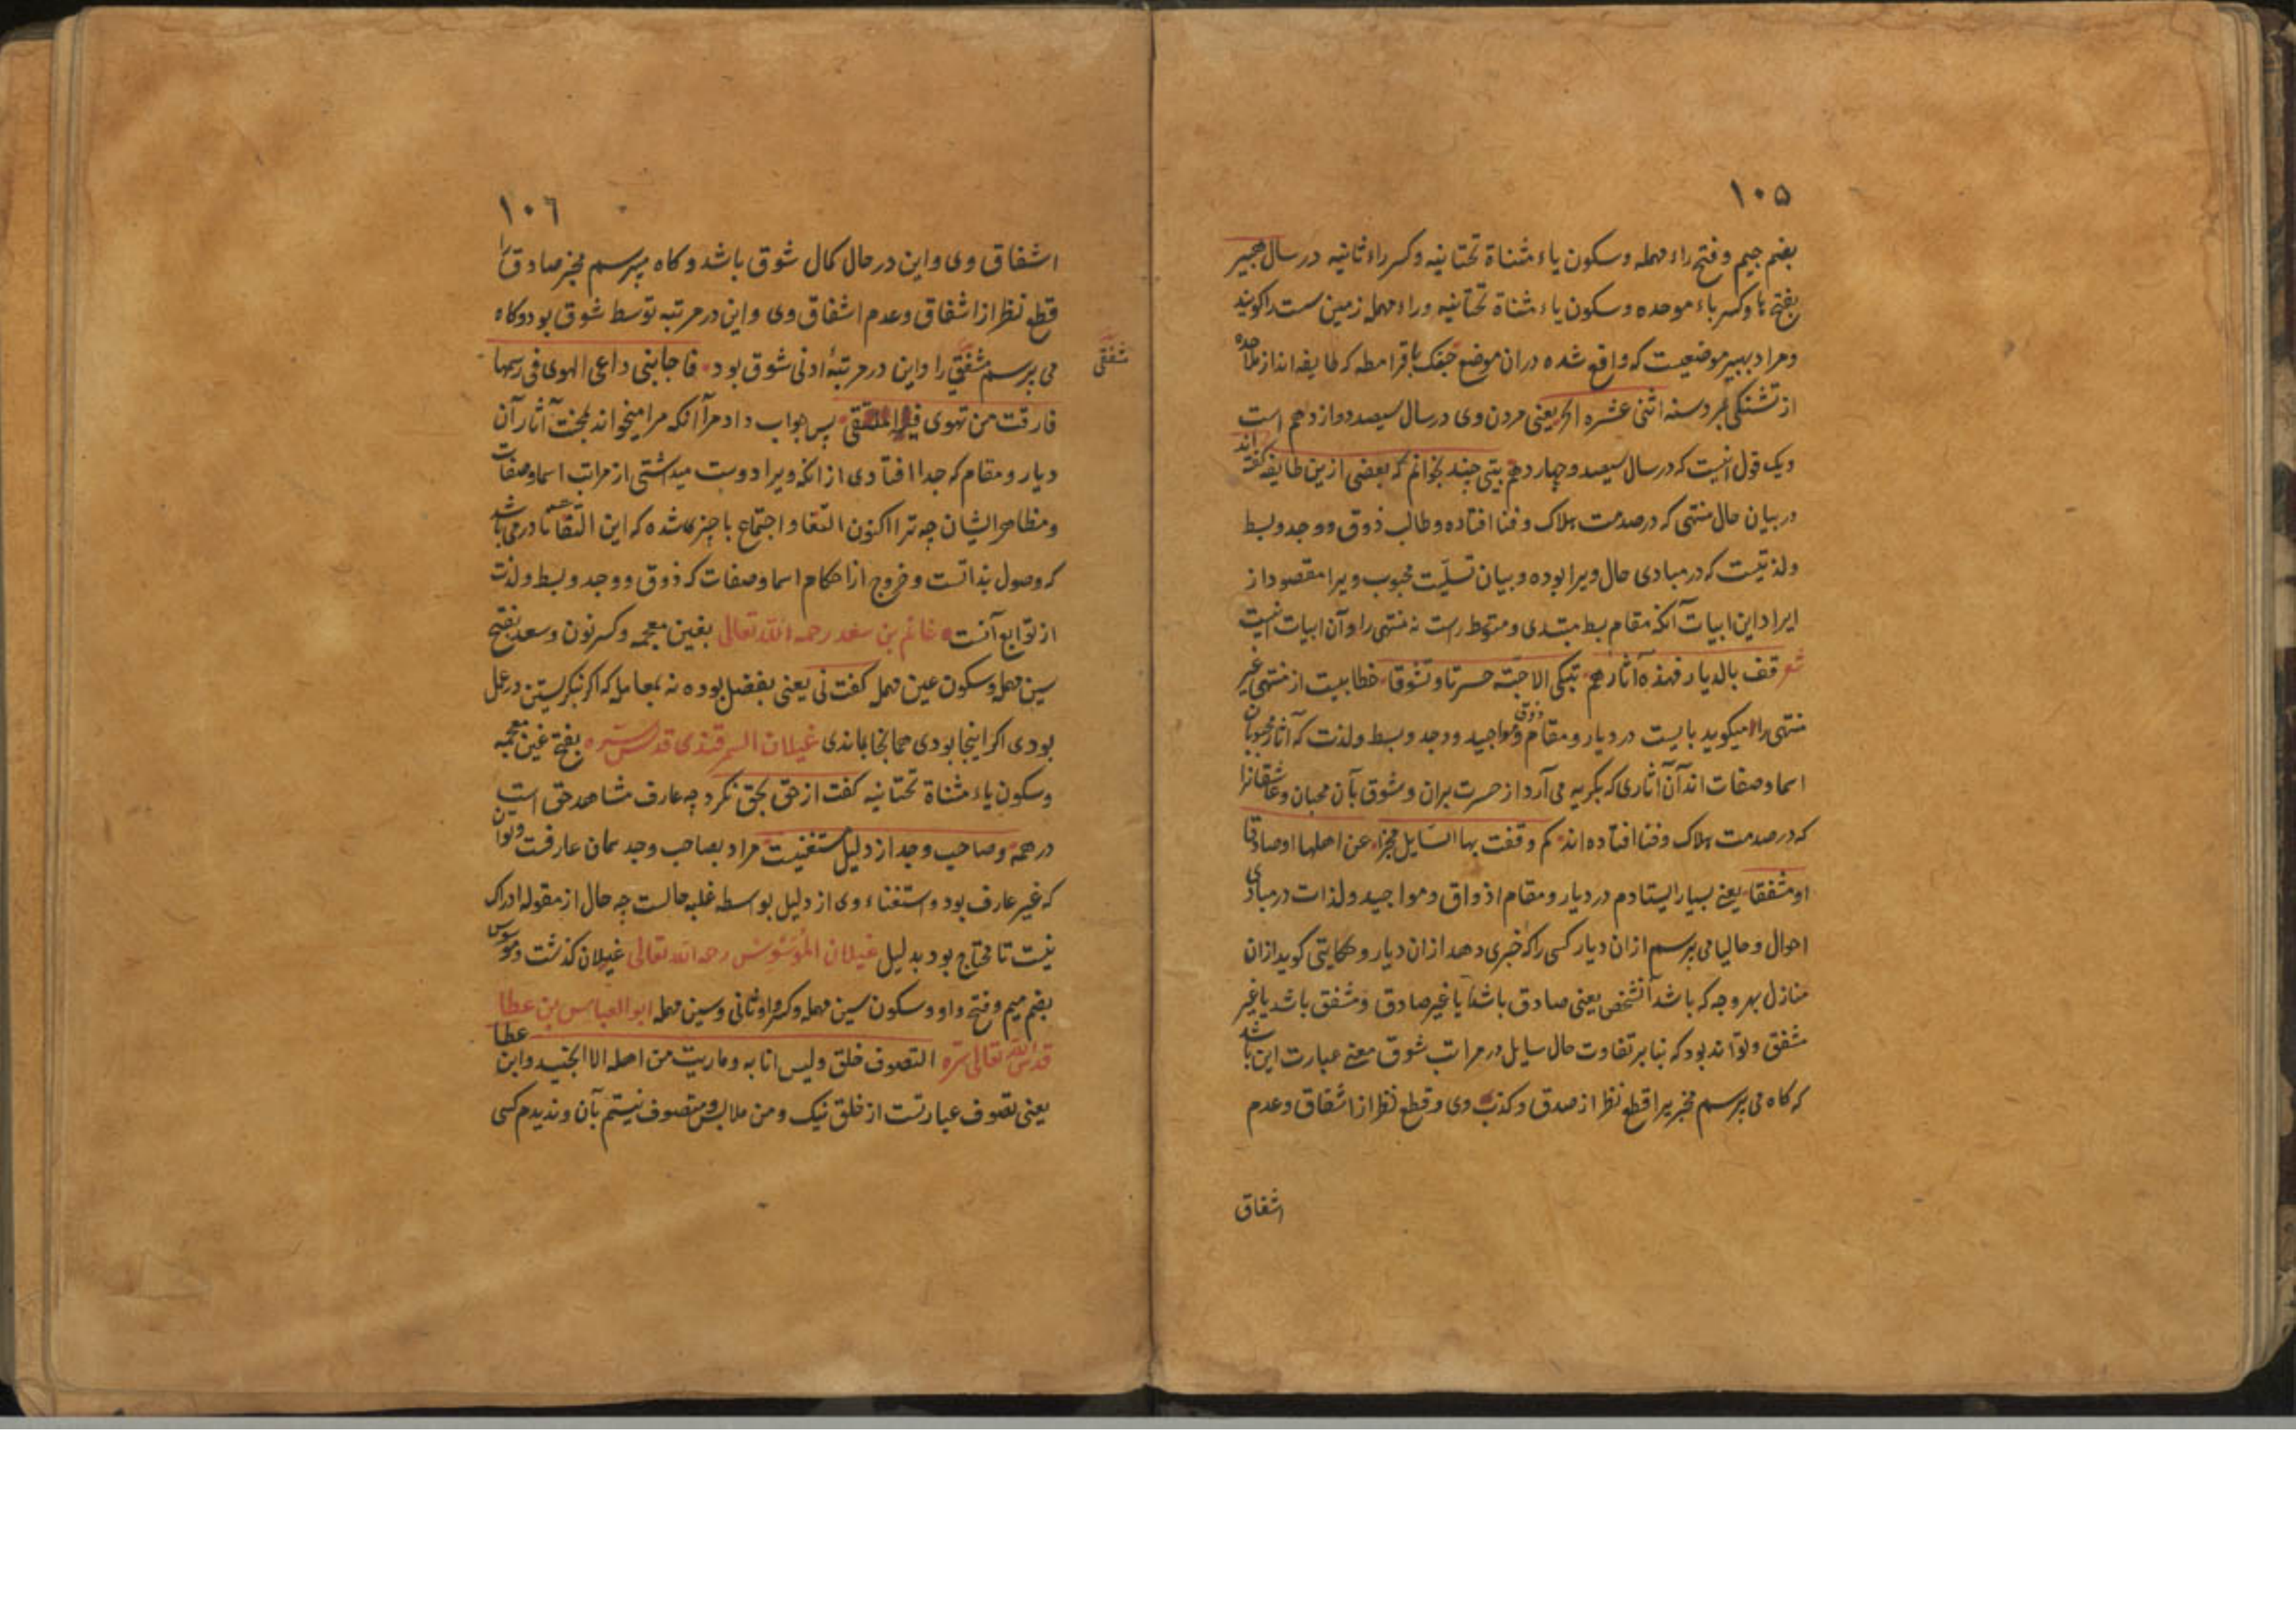 ۱۰۵
بضم جیم و فتح راء مهمله و سکون یاء مثناة تحتانیه و کسر راء ثانیه در سال هبیر
بفتح ها و کسر باء موحده و سکون یاء مثناة تحتانیه و راء مهمله زمین پست را کویند
و مراد بهبیر موضعیست که واقع شده در ان موضع جنک با قرامطه که طایفه اند از ملاحده
از تشنکی بمرد سنه اثنی عشره الخ یعنی مردن وی در سال سیصد و دوازدهم است
و یک قول انیست که در سال سیصد و چهاردهم بیتی چند بخوانم که بعضی ازین طایفه کفته اند
در بیان حال منتهی که در صدمت هلاک و فنا افتاده و طالب ذوق و وجد و بسط
و لذتیست که در مبادی حال ویرا بوده و بیان تسلیت محبوب ویرا مقصود از
ایراد این ابیات آنکه مقام بسط مبتدی و متوسط راست نه منتهی را و آن ابیات انیست
شعر قف بالدیار فهذه آثارهم تبکی الاحبّة حسرتا و تشوقا خطابیست از منتهی غیر
منتهی را میکوید بایست در دیار و مقام ذوق و مواجید و وجد و بسط و لذت که آثار محبوبان
اسما و صفات اند آن آثاری که بکریه می آرد از حسرت بران و شوق بآن محبان و عاشقانرا
که در صدمت هلاک و فنا افتاده اند کم وقفت بها السّایل مخبرا عن اهلها او صادقا
او مشفقا یعنی بسیار ایستادم در دیار و مقام اذواق و مواجید و لذات در مبادی
احوال و حالیا می پرسم از ان دیار کسی را که خبری دهد از ان دیار و حکایتی کوید از ان
منازل بهر وجه که باشد آنشخص یعنی صادق باشد یا غیر صادق و مشفق باشد یا غیر
مشفق و تواند بود که بنابر تفاوت حال سایل در مراتب شوق معنی عبارت این باشد
که کاه می پرسم مخبر یرا قطع نظر از صدق و کذب وی و قطع نظر از اشفاق و عدم
اشفاق
۱۰٦
اشفاق وی و این در حال کمال شوق باشد و کاه میپرسم مخبر صادق را
قطع نظر از اشفاق و عدم اشفاق وی و این در مرتبه توسط شوق بود و کاه
می پرسم مشفقی را و این در مرتبۀ ادنی شوق بود فاجابنی داعی الهوی فی رسمها
فارقت من تهوی الملتقی پس جواب داد مرا آنکه مرا میخواند بمحبت آثار آن
دیار و مقام که جدا افتادی از انکه ویرا دوست میداشتی از مراتب اسما و صفات
و مظاهر ایشان چه ترا اکنون التقا و اجتماع با چیزی شده که این التقا در می باشد
که وصول بذاتست و خروج از احکام اسما و صفات که ذوق و وجد و بسط و لذت
از توابع آنست غانم بن سعد رحمه الله تعالی بغین معجمه و کسر نون و سعد بفتح
سین مهمله و سکون عین مهمله کفت نی یعنی بفضل بوده نه بمعامله که اکر نکریستن در عمل
بودی اکر اینجا بودی همانجا بماندی غیلان السمرقندی قدس سره بفتح غین معجمه
و سکون یاء مثناة تحتانیه کفت از حق بحق نکرد چه عارف مشاهد حق است
در همه و صاحب وجد از دلیل مستغنیست مراد بصاحب وجد همان عارفست و توان
که غیر عارف بود و استغناء وی از دلیل بواسطه غلبه حالست چه حال از مقوله ادراک
نیست تا محتاج بود بدلیل غیلان المُوَسْوِس رحمه الله تعالی غیلان کذشت و موسوس
بضم میم و فتح واو و سکون سین مهمله و کسر واو ثانی و سین مهمله ابو العباس بن عطا
قدس الله تعالی سره التصوف خلق و لیس انا به و ما رایت من اهله الا الجنید و ابن عطا
یعنی تصوف عبارتست از خلق نیک و من ملابس و متصوف نیستم بآن و ندیدم کسی